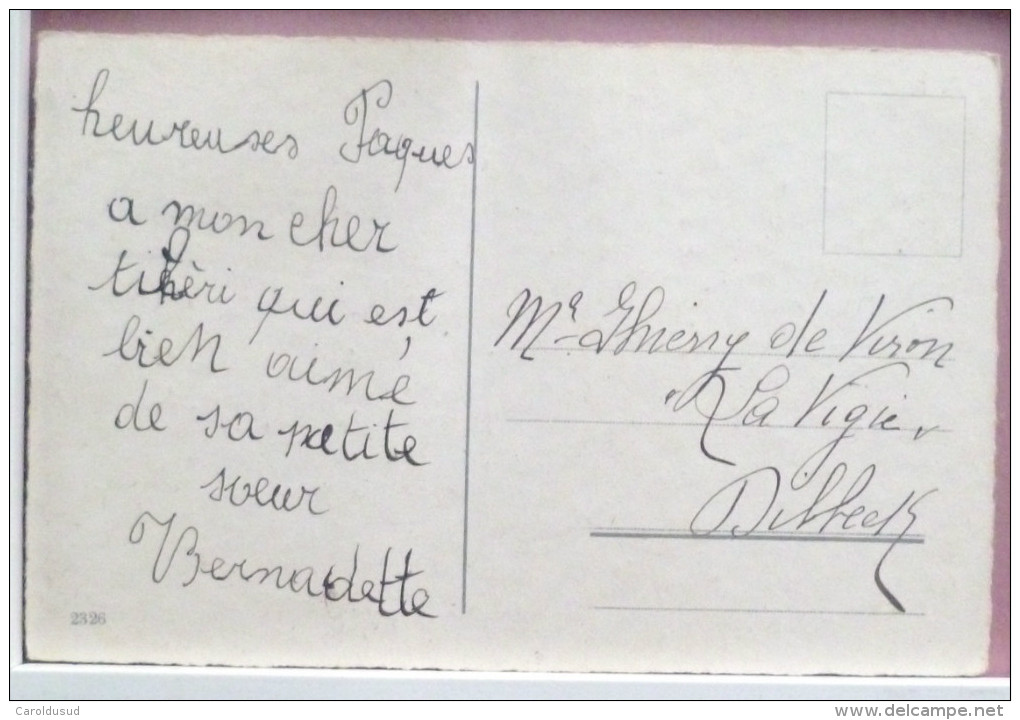 heureuses Paques
a mon cher
tihèri qui est
bien aimé
de sa petite
soeur
Bernadette
2326
Mr Thierry de Viron
"La Vigie"
Dilbeek
Caroldusud
www.delcampe.net